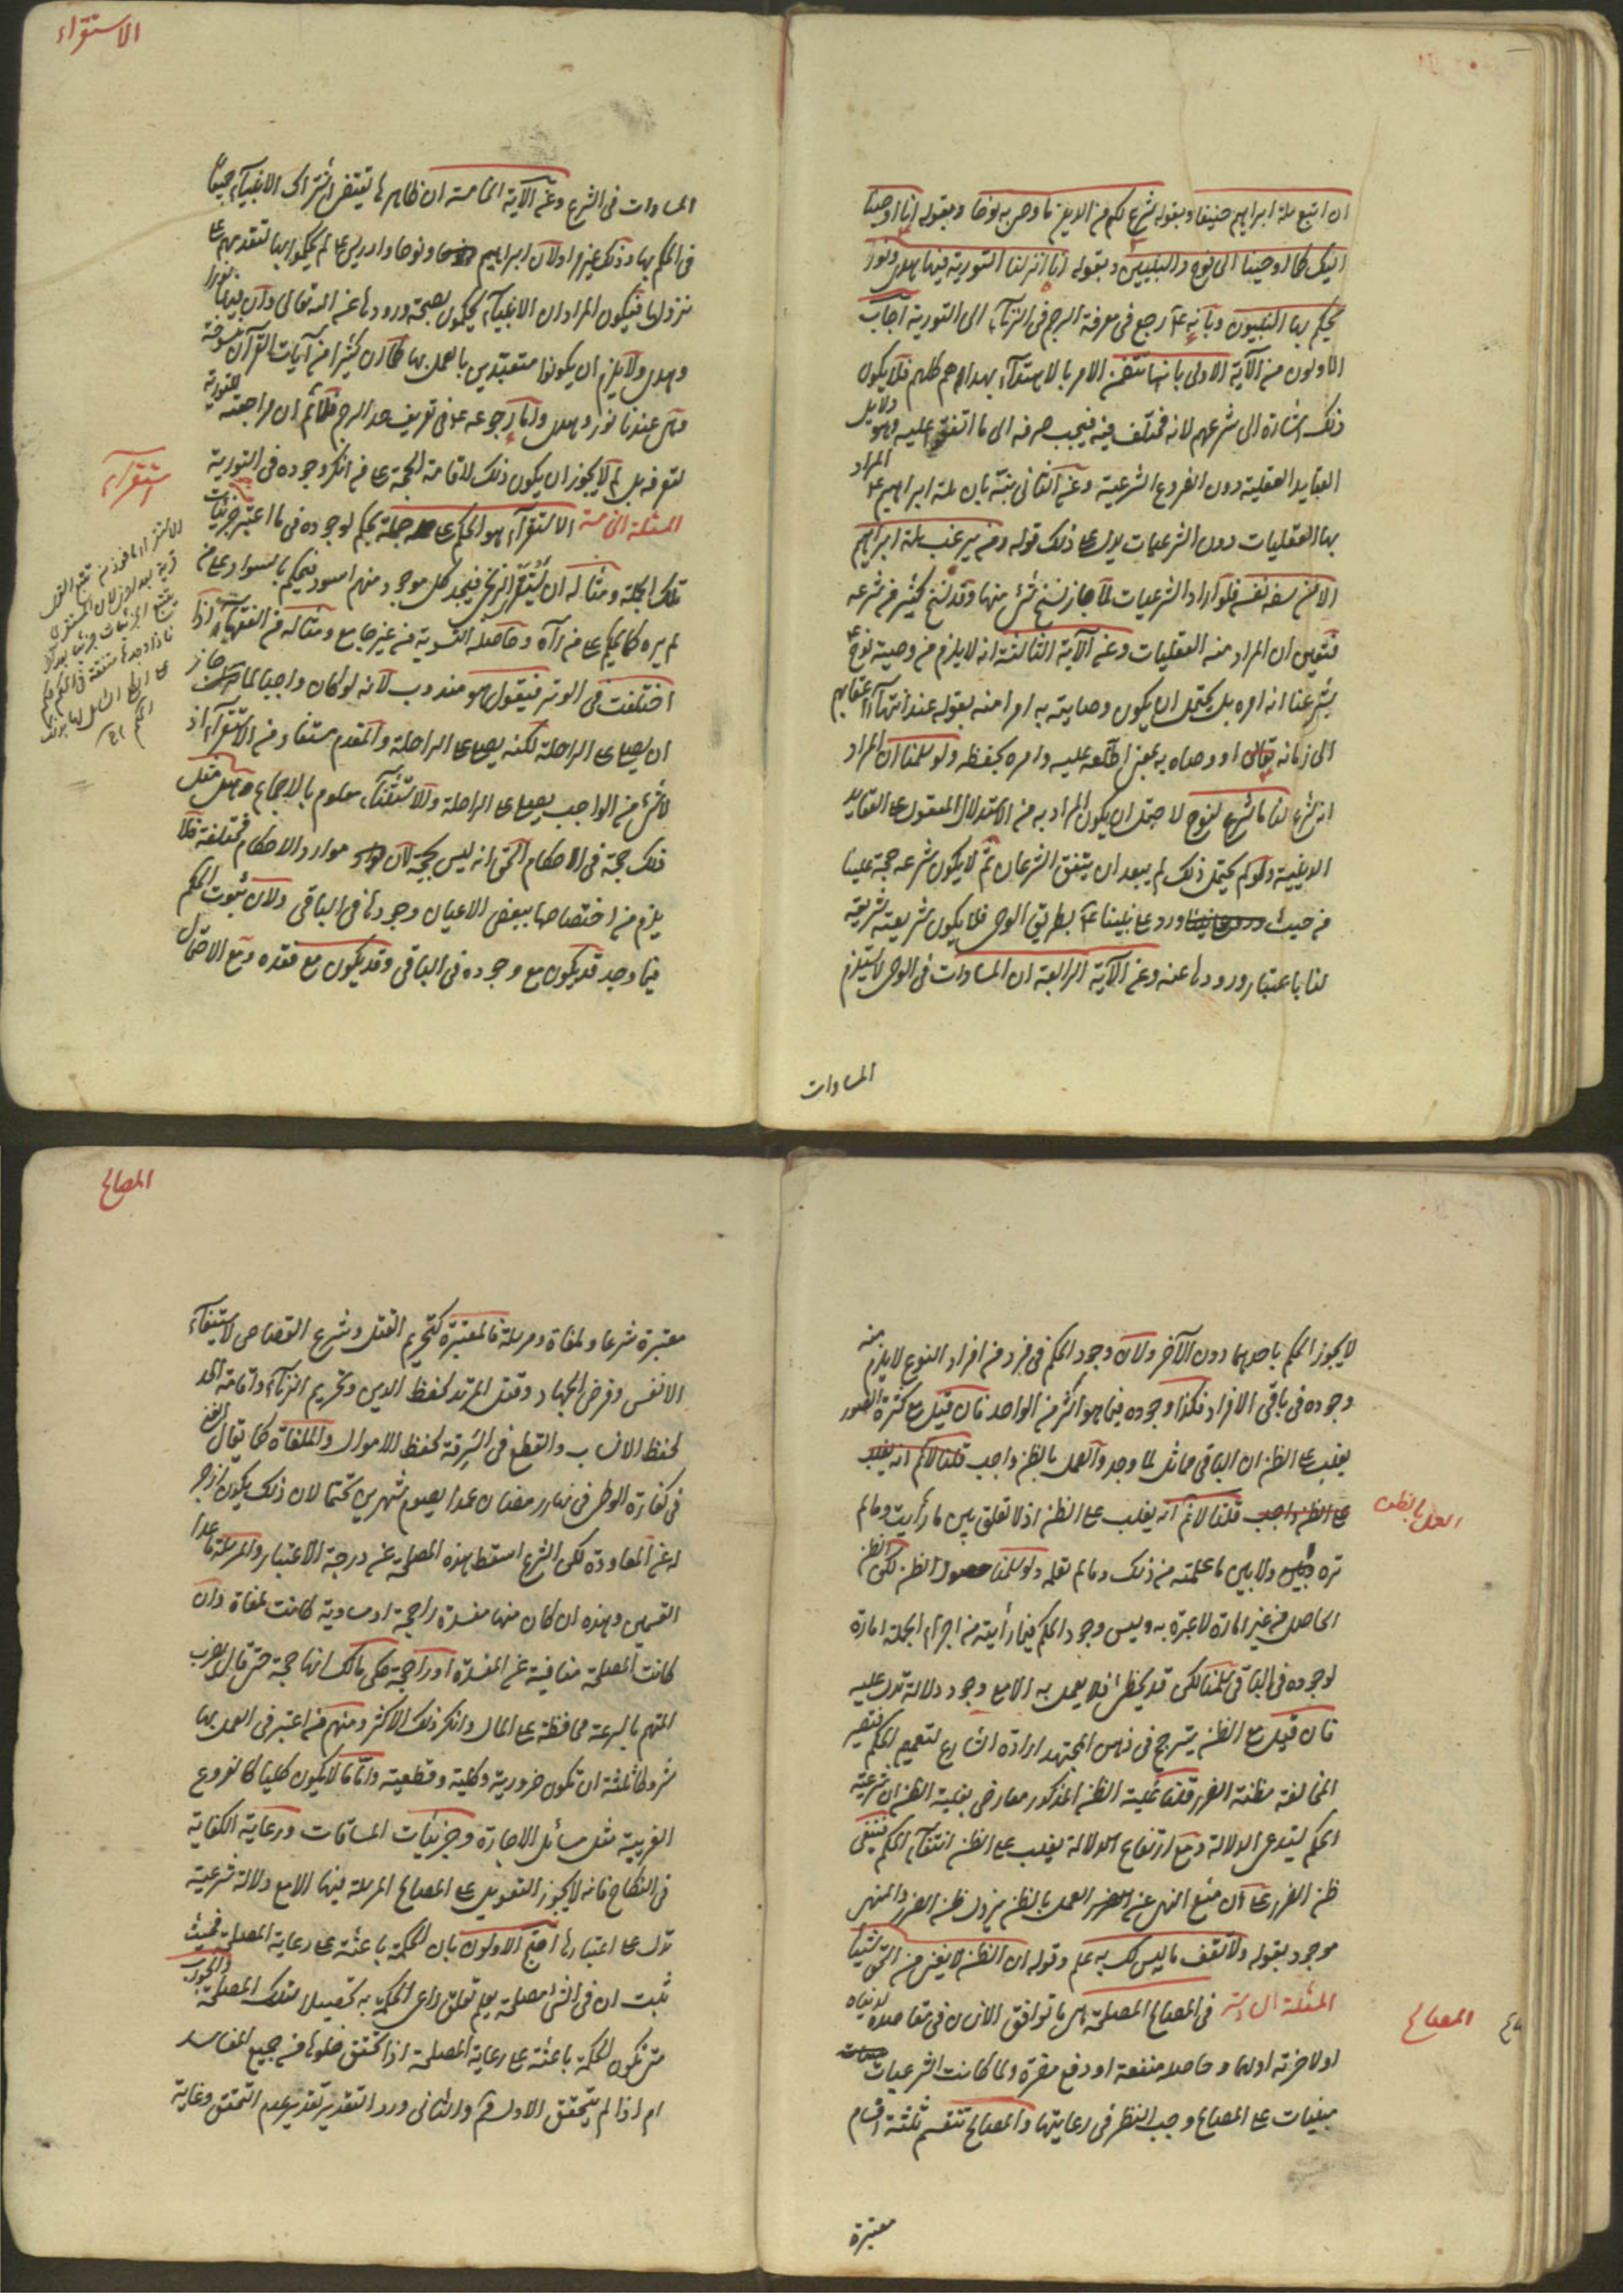 ان اتبع ملة ابراهيم حنيفا وبقوله شرع لكم من الدين ما وصى به نوحا وبقوله انا اوحينا
اليك كما اوحينا الى نوح والنبيين وبقوله انا انزلنا التورية فيها هدى ونور
يحكم بها النبيون وبانه عم رجع في معرفة الرجم في الزناء الى التورية اجاب
الاولون من الآية الاولى بانها تتضمن الامر بالاهتداء بهداهم كلهم فلا يكون
ذلك اشارة الى شرعهم لانه مختلف فيه فيجب صرفه الى ما اتفق عليه وهو دلايل
العقايد العقلية دون الفروع الشرعية وعن الثاني بان ملة ابراهيم عم المراد
بها العقليات دون الشرعيات يدل على ذلك قوله ومن يرغب عن ملة ابراهيم
الا من سفه نفسه فلو اراد الشرعيات لما جاز نسخ شئ منها وقد نسخ كثير من شرعه
فتعين ان المراد منه العقليات وعن الآية الثالثة انه لا يلزم من وصية نوح
بشرعنا انه امره بل يحتمل ان يكون وصايته به امرا منه بقوله عند انتهاء اعقابهم
الى زمانه او وصاه به بمعنى اطلعه عليه وامره بحفظه ولو سلمنا ان المراد
انه شرع لنا ما شرع لنوح لاحتمل ان يكون المراد به من الاستدلال المعقول على العقايد
الدينية ولو لم يحتمل ذلك لم يبعد ان يتفق الشرعان ثم لا يكون شرعه حجة علينا
من حيث ورد على نبينا عم بطريق الوحى فلا يكون شريعته شريعة
لنا باعتبار ورودها عنه وعن الآية الرابعة ان المساوات في الوحى لا يستلزم
المساوات
الاستقراء
المساوات في الشرع وعن الآية الخامسة ان ظاهرها يقتضى اشتراك الانبياء جميعا
في الحكم بها وذلك غير مراد لان ابراهيم ونوحا وادريس عم لم يحكموا بها لتقدمهم على
نزولها فيكون المراد ان الانبياء يحكمون بصحة ورودها عن الله تعالى وان فيها نورا
وهدى ولا يلزم ان يكونوا متعبدين بالعمل بها كما ان كثيرا من آيات القرآن منسوخة
وهي عندنا نور وهدى واما رجوعه عم في تعريف حد الرجم فلا نم ان مراجعته للتورية
لتعرفه بل لم لا يجوز ان يكون ذلك لاقامة الحجة على من انكر وجوده في التورية
المسئلة الخامسة الاستقراء هو الحكم على جملة بحكم لوجوده في ما اعتبر من جزئيات
تلك الجملة ومثاله ان تستقرأ الزنج فيجد كل موجود منهم اسود فيحكم بالسواد على من
لم يره كما يحكم على من رآه وحاصله التسوية من غير جامع ومثاله من الفقهيات اذا
اختلفت في الوتر فيقول هو مندوب لانه لو كان واجبا لما جاز
ان يصلى على الراحلة لكنه يصلى على الراحلة والمقدم مستفاد من الاستقراء اذ
لا شئ من الواجب يصلى على الراحلة والاستثناء معلوم بالاجماع وهل مثل
ذلك حجة في الاحكام الحق انه ليس بحجة لان موارد الاحكام مختلفة فلا
يلزم من اختصاصها ببعض الاعيان وجودها في الباقي ولان ثبوت الحكم
فيما وجد قد يكون مع وجوده في الباقي وقد يكون مع فقده ومع الاحتمال
استقراء
الاستقراء ماخوذ من تتبع القرى
قرية بعد اخرى لان المستقرى
يتتبع الجزئيات جزئيا بعد آخر
لا يجوز الحكم باحدهما دون الآخر ولان وجود الحكم في فرد من افراد النوع لا يلزم منه
وجوده في باقي الافراد فكذا وجوده فيما هو اكثر من الواحد فان قيل مع كثرة الصور
يغلب على الظن ان الباقي مماثل لما وجد والعمل بالظن واجب قلنا لا نم انه يغلب
على الظن واجب قلنا لا نم انه يغلب على الظن اذ لا تعلق بين ما رأيت وما لم
تره ولا بين ما علمته من ذلك وما لم تعلمه ولو سلمنا حصول الظن لكن الظن
الحاصل من غير امارة لا عبرة به وليس وجود الحكم فيما رأيته من اجزاء الجملة امارة
لوجوده في الباقي سلمنا لكن قد يخطئ فلا يعمل به الا مع وجود دلالة تدل عليه
فان قيل مع الظن يترجح في ذهن المجتهد ارادة الشارع لتعميم الحكم فتصير
المخالفة مظنة الضرر قلنا غلبة الظن المذكور معارض بغلبة الظن ان شرعية
الحكم يستدعى الدلالة ومع ارتفاع الدلالة يغلب على الظن انتفاء الحكم فينتفى
ظن الضرر على ان منع النهى عن العمل بالظن يزيل ظن الضرر والنهى
موجود بقوله ولا تقف ما ليس لك به علم وقوله ان الظن لا يغنى من الحق شيئا
المسئلة السادسة في المصالح المصلحة هي ما توافق الانسان في مقاصده لدنياه
او لاخرته او لهما وحاصله منفعة او دفع مضرة ولما كانت الشرعيات
مبنيات على المصالح وجب النظر في رعايتها والمصالح تنقسم ثلثة اقسام
العمل بالظن
المصالح
معتبرة
المصالح
معتبرة شرعا وملغاة ومرسلة فالمعتبرة كتحريم القتل وشرع القصاص لاستيفاء
الانفس وفرض الجهاد وقتل المرتد لحفظ الدين وتحريم الزناء واقامة الحد
لحفظ الانساب والقطع في السرقة لحفظ الاموال والملغاة كما يقال
في كفارة الوطى في نهار رمضان عمدا يصوم شهرين تحتما لان ذلك يكون ازجر
له عن المعاودة لكن الشرع اسقط بهذه المصلحة عن درجة الاعتبار والمرسلة ما عدا
القسمين وهذه ان كان منها مفسدة راجحة او مساوية كانت ملغاة وان
كانت المصلحة صافية عن المفسدة او راجحة حكى مالك انها حجة حتى قال بضرب
المتهم بالسرقة محافظة على المال وانكر ذلك الاكثر ومنهم من اعتبر في العمل بها
شروطا ثلثة ان تكون ضرورية وكلية وقطعية واما ما لا يكون كليا كالفروع
الغريبة مثل مسائل الاجارة وجزئيات المساقات ورعاية الكفاية
في النكاح فانه لا يجوز التعويل على المصالح المرسلة فيها الا مع دلالة شرعية
تدل على اعتبارها احتج الاولون بان الحكمة باعثة على رعاية المصلحة فحيث
ثبت ان في الشئ مصلحة يعلم تعلق داعى الحكيم به تحصيلا لتلك المصلحة والجواب
متى تكون الحكمة باعثة على رعاية المصلحة اذا تحقق خلوها من جميع المفاسد
ام اذا لم يتحقق الاول م والثاني ورد التقدير تقدير عدم التحقق وغاية